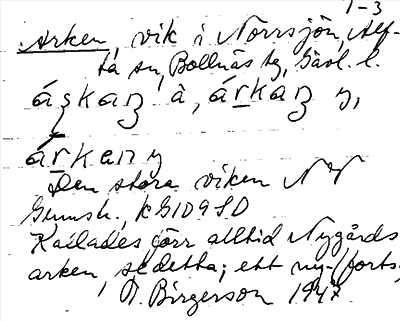 1-3
Arken, vik i Norrsjön, Alf-
ta sn, Bollnäs tg, Gävl. l.
áșkaɳ à, árkaɳ y,
árkaɳ y
Den stora viken N V
Gunsh., KGID9SD
Kallades förr alltid Nygårds
arken, se detta; ett ny- (forts.
N. Birgerson 1947.